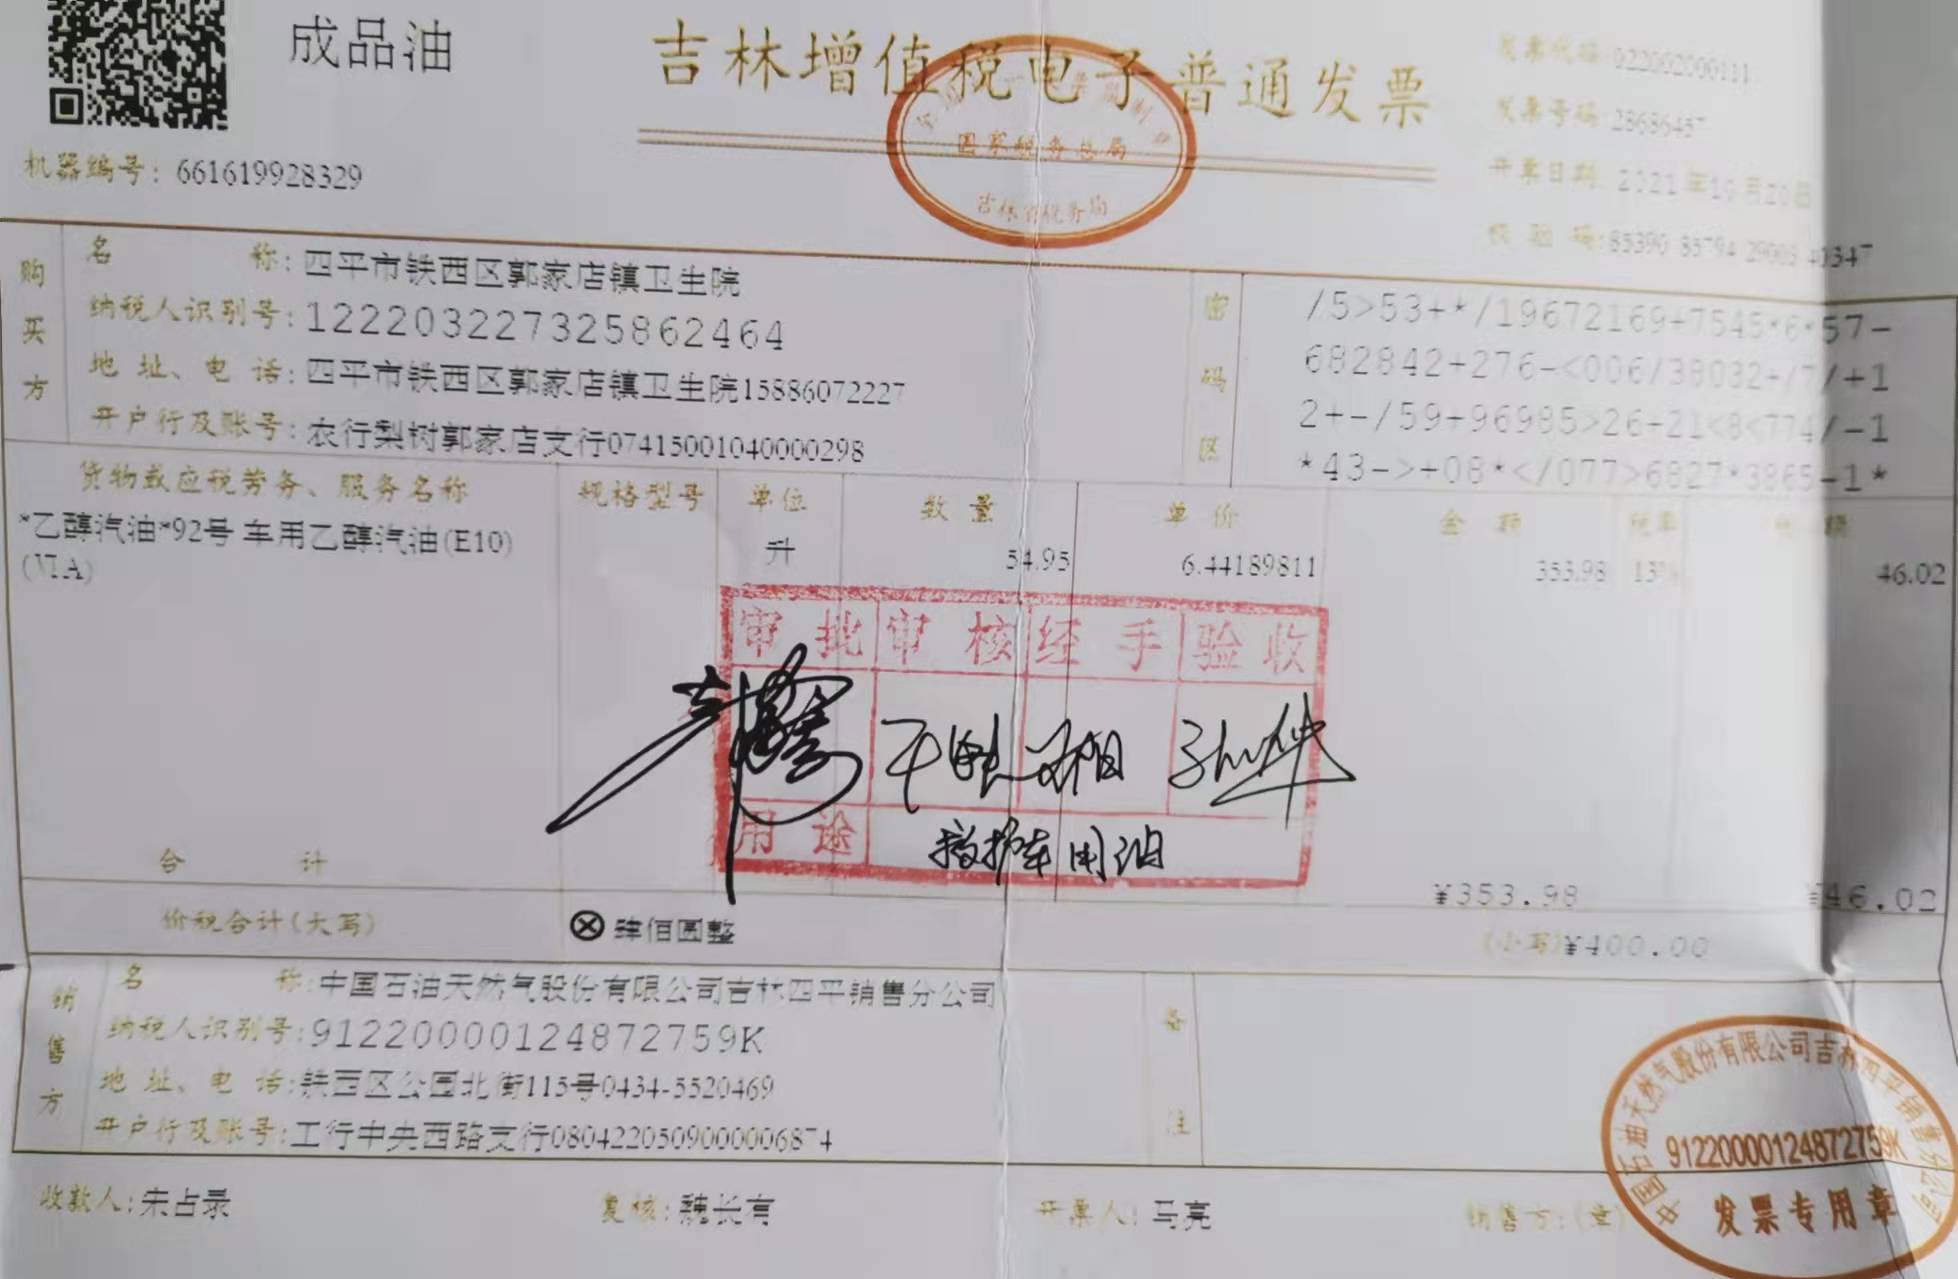 成品油
吉林增值税电子普通发票
国家税务总局
吉林省税务局
机器编号: 661619928329
发票代码: 022002000111
发票号码: 28686457
开票日期: 2021年10月20日
校验码:
购买方
名称: 四平市铁西区郭家店镇卫生院
纳税人识别号: 122203227325862464
地址、电话: 四平市铁西区郭家店镇卫生院15886072227
开户行及账号: 农行梨树郭家店支行07415001040000298
密码区
/5>53+*/19672169+7545*6*57-
682842+276-<006/38032+/7/+1
2+-/59+96985>26+21<8<774/-1
*43->+08*</077>6827*3865-1*
货物或应税劳务、服务名称 规格型号 单位 数量 单价 金额 税率 税额
*乙醇汽油*92号 车用乙醇汽油(E10) 升 54.95 6.44189811 353.98 13% 46.02
(VIA)
审批 审核 经手 验收
孙华
用途 救护车用油
合计 ¥353.98 ¥46.02
价税合计(大写) ⊗肆佰圆整 (小写)¥400.00
销售方
名称: 中国石油天然气股份有限公司吉林四平销售分公司
纳税人识别号: 91220000124872759K
地址、电话: 铁西区公园北街115号0434-5520469
开户行及账号: 工行中央西路支行0804220509000006874
备注
收款人: 宋占录 复核: 魏长有 开票人: 马亮 销售方: (章)
中国石油天然气股份有限公司吉林四平销售分公司
91220000124872759K
发票专用章